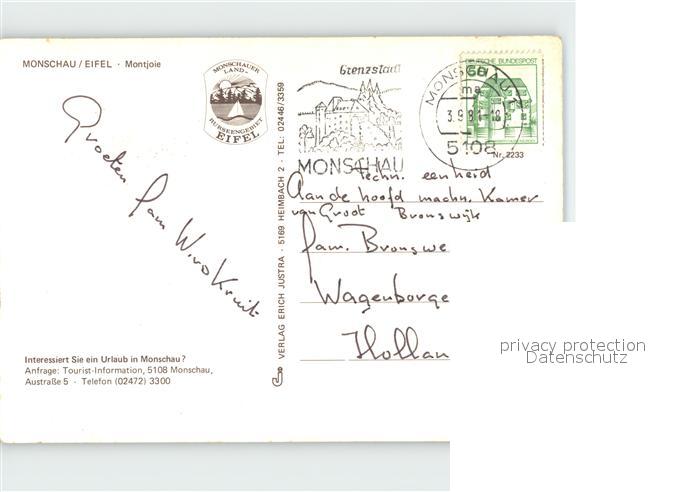 MONSCHAU / EIFEL · Montjoie
MONSCHAUER
LAND
RURSEENGEBIET
EIFEL
Groeten
fam Wino Kruit
Interessiert Sie ein Urlaub in Monschau?
Anfrage: Tourist-Information, 5108 Monschau,
Austraße 5 · Telefon (02472) 3300
VERLAG ERICH JUSTRA · 5169 HEIMBACH 2 · TEL: 02446/3359
Grenzstadt
MONSCHAU
MONSCHAU 1
ma
3.9.81-18
5108
DEUTSCHE BUNDESPOST
Nr. 2233
Techn. eenheid
Aan de hoofd machn. Kamer
van Groot Bronswijk
fam. Bronswe
Wagenborge
Hollan
privacy protection
Datenschutz